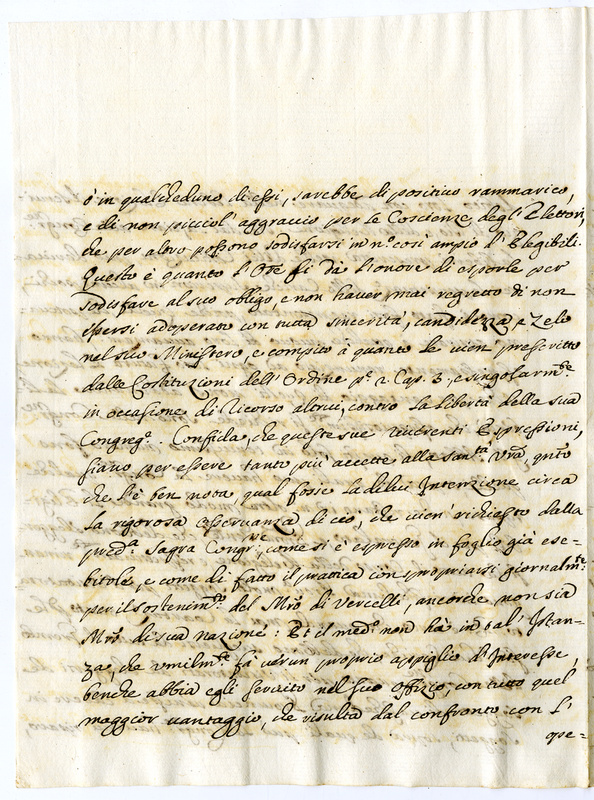 ò in qualcheduno di essi, sarebbe di positivo rammarico,
e di non picciol' aggravio per le Coscienze degl' Elettori,
che per altro possono sodisfarsi in nº così ampio d' Elegibili.
Questo è quanto l' Ore si dà l'onore di esporle per
sodisfare al suo obligo, e non haver mai regretto di non
essersi adoperato con tutta sincerità, candidezza, e Zelo
nel suo Ministero, e compito à quanto le vien' prescritto
dalle Costituzioni dell' Ordine pᵉ. 2. Cap. 3., e singolarmᵗᵉ.
in occasione di Ricorso alcuni, contro la libertà della sua
Congregᵉ. Confida, che queste sue riverenti Espressioni,
siano per essere tanto più accette alla Santᵗᵃ Vrã, qntõ
che l'è ben nota qual fosse la di lei Intenzione circa
la rigorosa osservanza di ciò, che vien' richiesto dalla
predᵃ. Sagra Congrⁿᵉ, come si è espresso in foglio già esi-
bitole, e come di fatto il prattica con propriarsi giornalmᵗᵉ.
per il sostenimᵗᵒ. del Mrõ di Vercelli, ancorche non sia
Mrõ. di sua nazione: Et il medᵒ. non ha in tal' Istan-
za, che umilmᵗᵉ. fà verun proprio appiglio d'Interesse,
benche abbia egli servito nel suo Offizio, con tutto quel
maggior vantaggio, che risulta dal confronto con l'
ope=